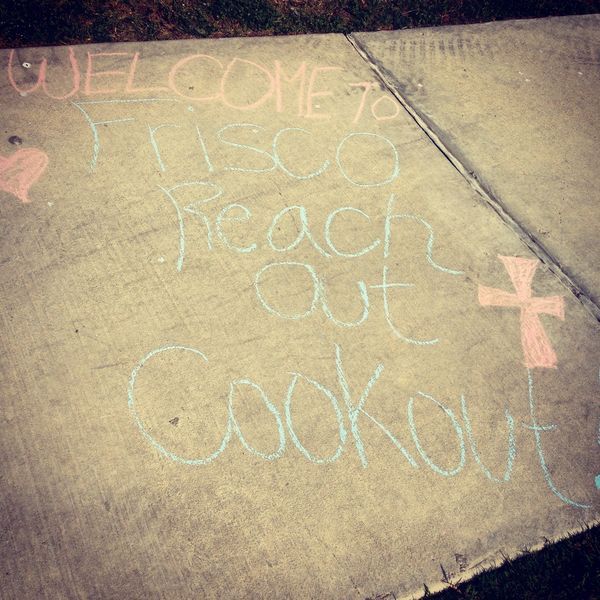 WELCOME TO
Frisco
Reach
Out
Cookout!